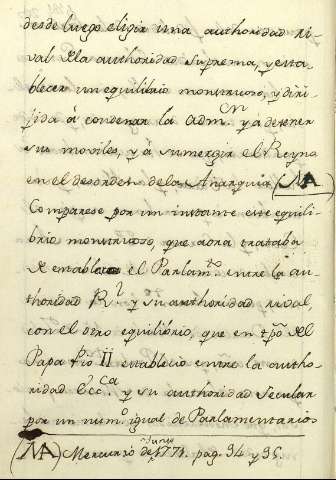 desde luego eligir una authoridad ri-
val de la authoridad suprema, y esta-
blecer un equilibrio monstruoso, y diri-
jida á condenar la adm.cn y a detener
sus moviles, y á sumergir el Reyno
en el desorden de la Anarquia (MA)
Comparese por un instante este equili-
brio monstruoso, que aora trataba
de establecer el Parlam.to entre la au-
thoridad R.l y su authoridad rival,
con el otro equilibrio, que en tpo del
Papa Pio II establecio entre la autho-
ridad Ecc.ca y su authoridad secular
por un num.o igual de Parlamentarios
(MA) Mercurio de Junio 1771. pag. 94 y 95.